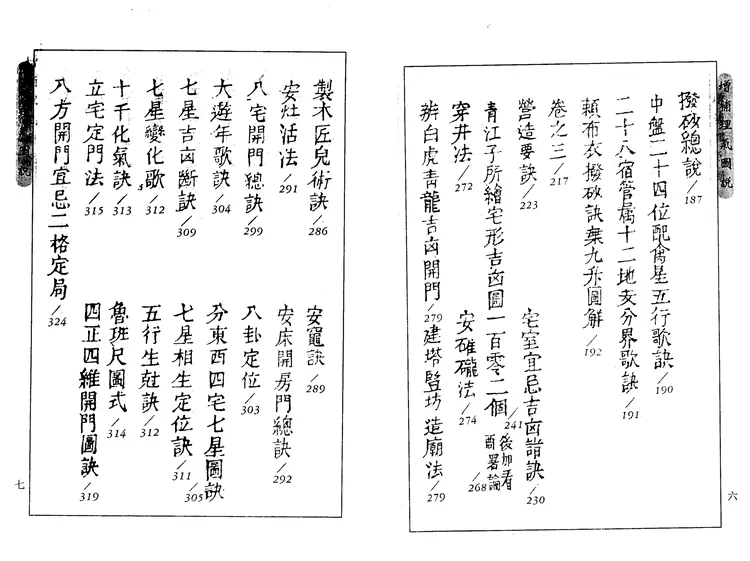 增補理氣圖說
撥砂總說/187
中盤二十四位配禽星五行歌訣/190
二十八宿管属十二地支分界歌訣/191
賴布衣撥砂訣棄九升圖解/192
卷之三/217
營造要訣/223 宅室宜忌吉凶諧訣/230
青江子所繪宅形吉凶圖一百零二個/241 後加看商署論/268
穿井法/272 安碓礲法/274
辨白虎青龍吉凶開門/279 建塔豎坊造廟法/279
六
製木匠兒術訣/286 安竈訣/289
安灶活法/291 安床開房門總訣/292
八宅開門總訣/299 八卦定位/303
大遊年歌訣/304 分東西四宅七星圖訣/305
七星吉凶斷訣/309 七星相生定位訣/311
七星變化歌/312 五行生尅訣/312
十干化氣訣/313 魯班尺圖式/314
立宅定門法/315 四正四維開門圖訣/319
八方開門宜忌二格定局/324
七